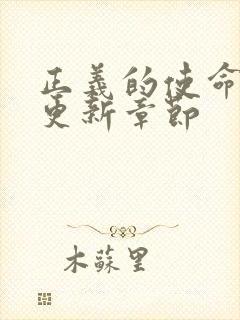 正義的使命
更新章節
木蘇里